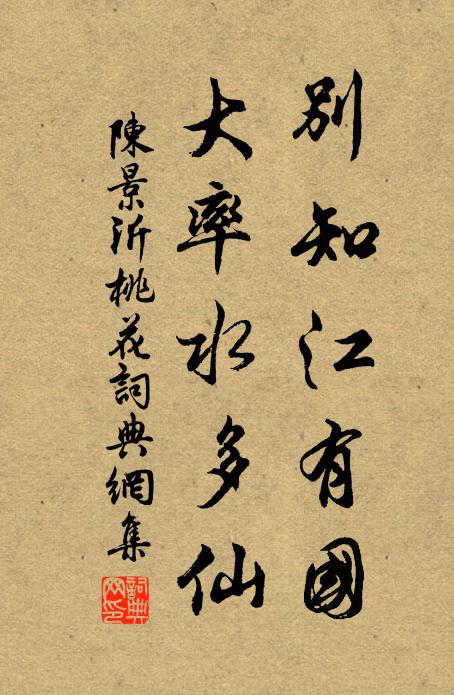 別知江有國
大率水多仙
陳景沂桃花詞典網集
詞典
网印